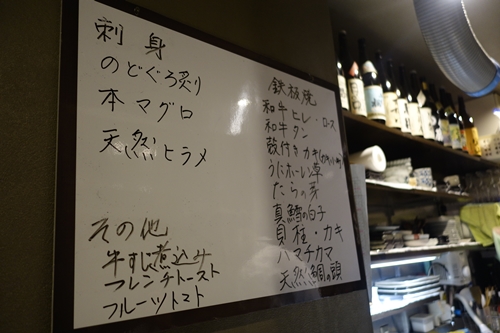 刺身
のどぐろ炙り
本マグロ
天然ヒラメ
その他
牛すじ煮込み
フレンチトースト
フルーツトマト
鉄板焼
和牛ヒレ・ロース
和牛タン
殻付きカキ
うにホーレン草
たらの芽
真鱈の白子
貝柱・カキ
ハマチカマ
天然鯛の頭